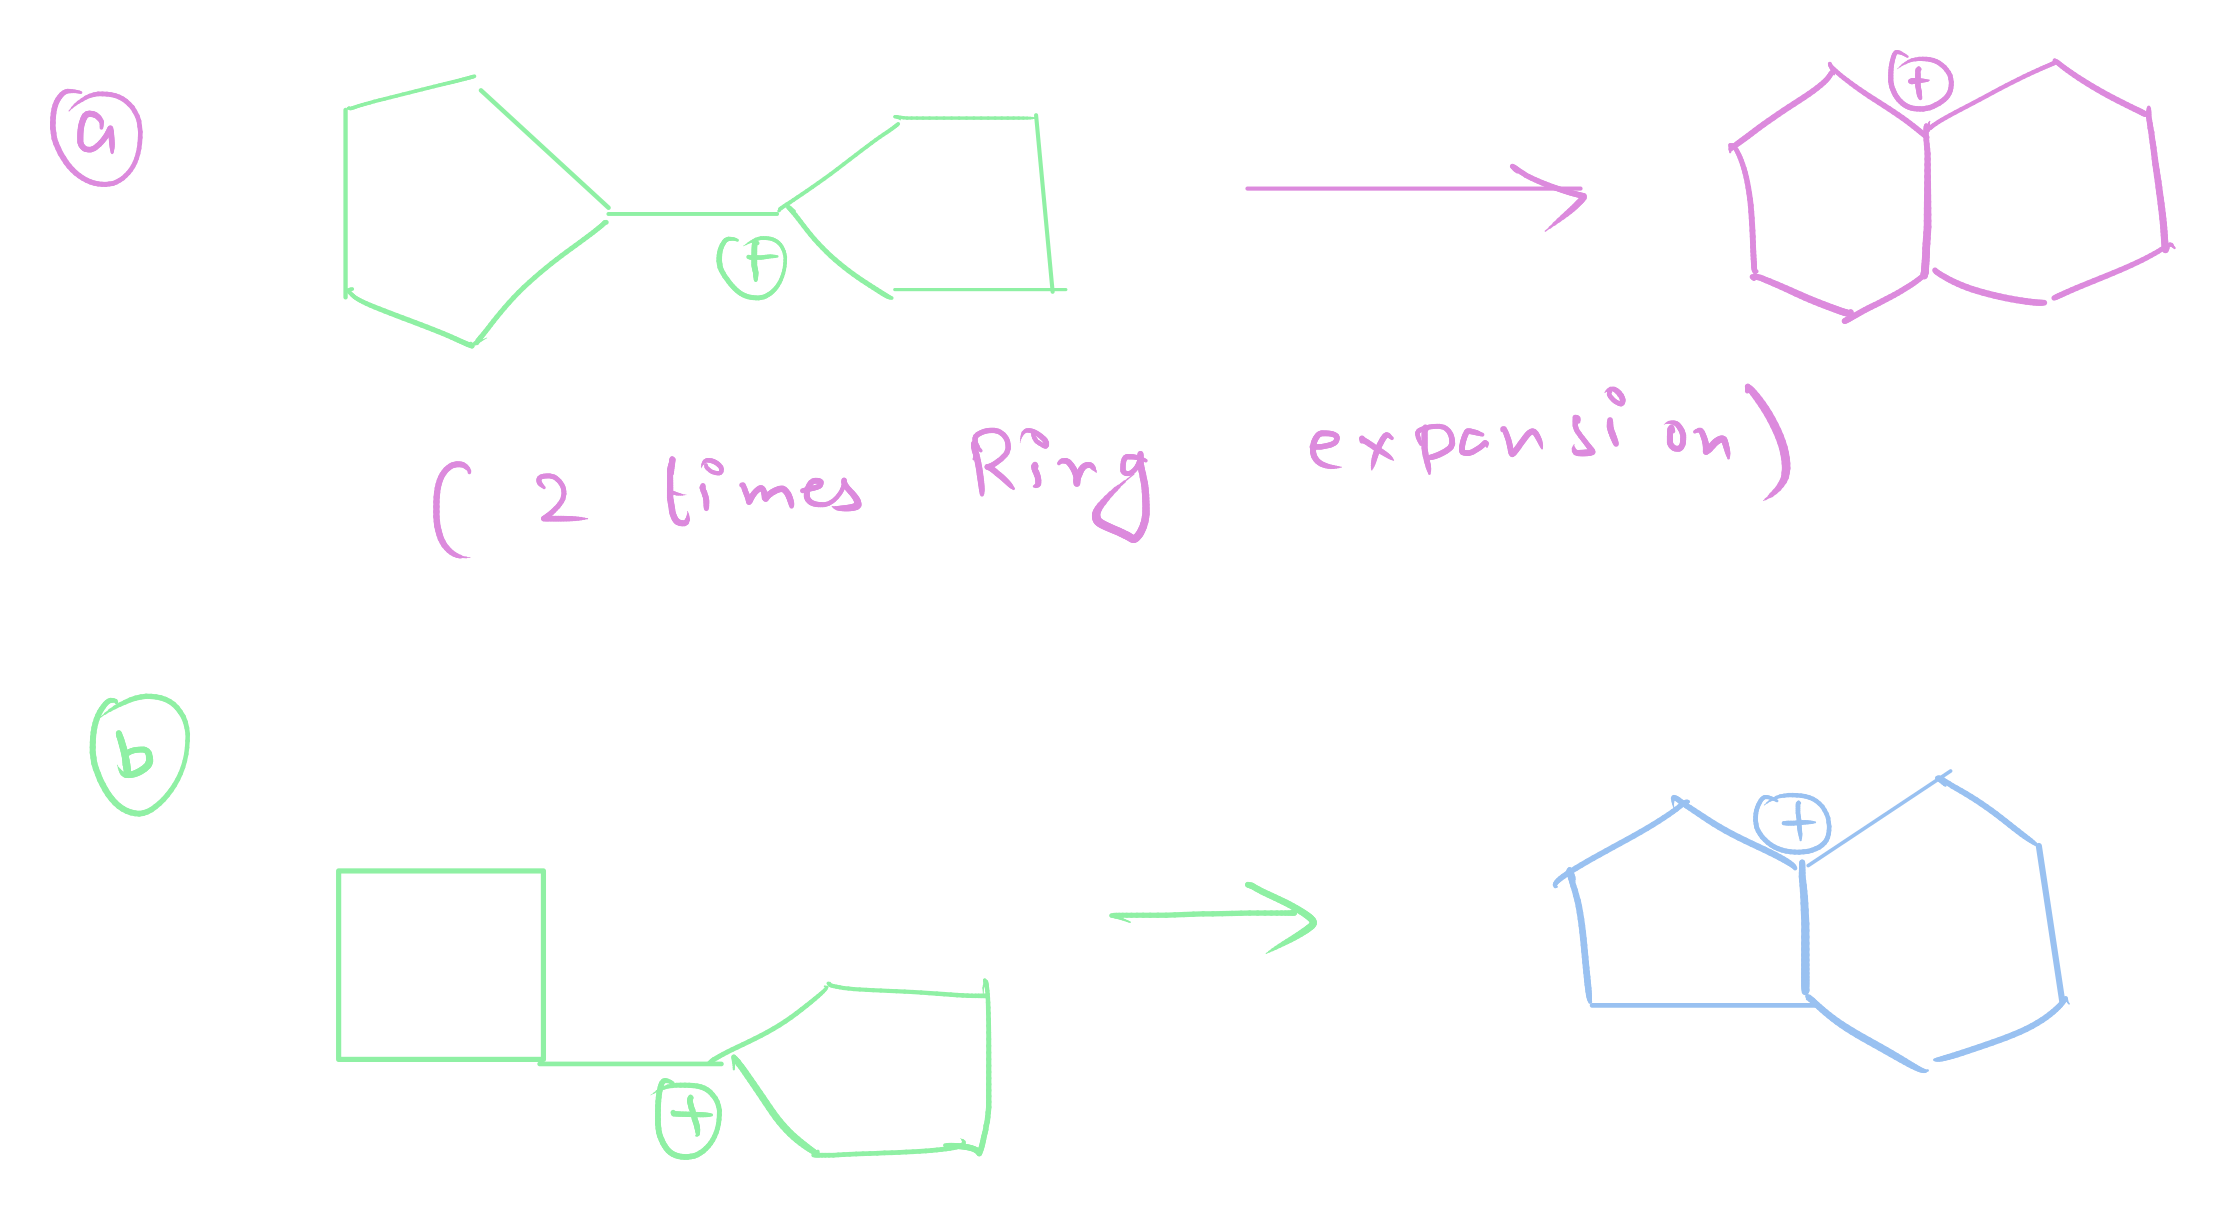 a
+
+
( 2 times Ring expansion)
b
+
+